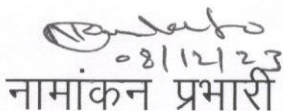 08/12/23
नामांकन प्रभारी